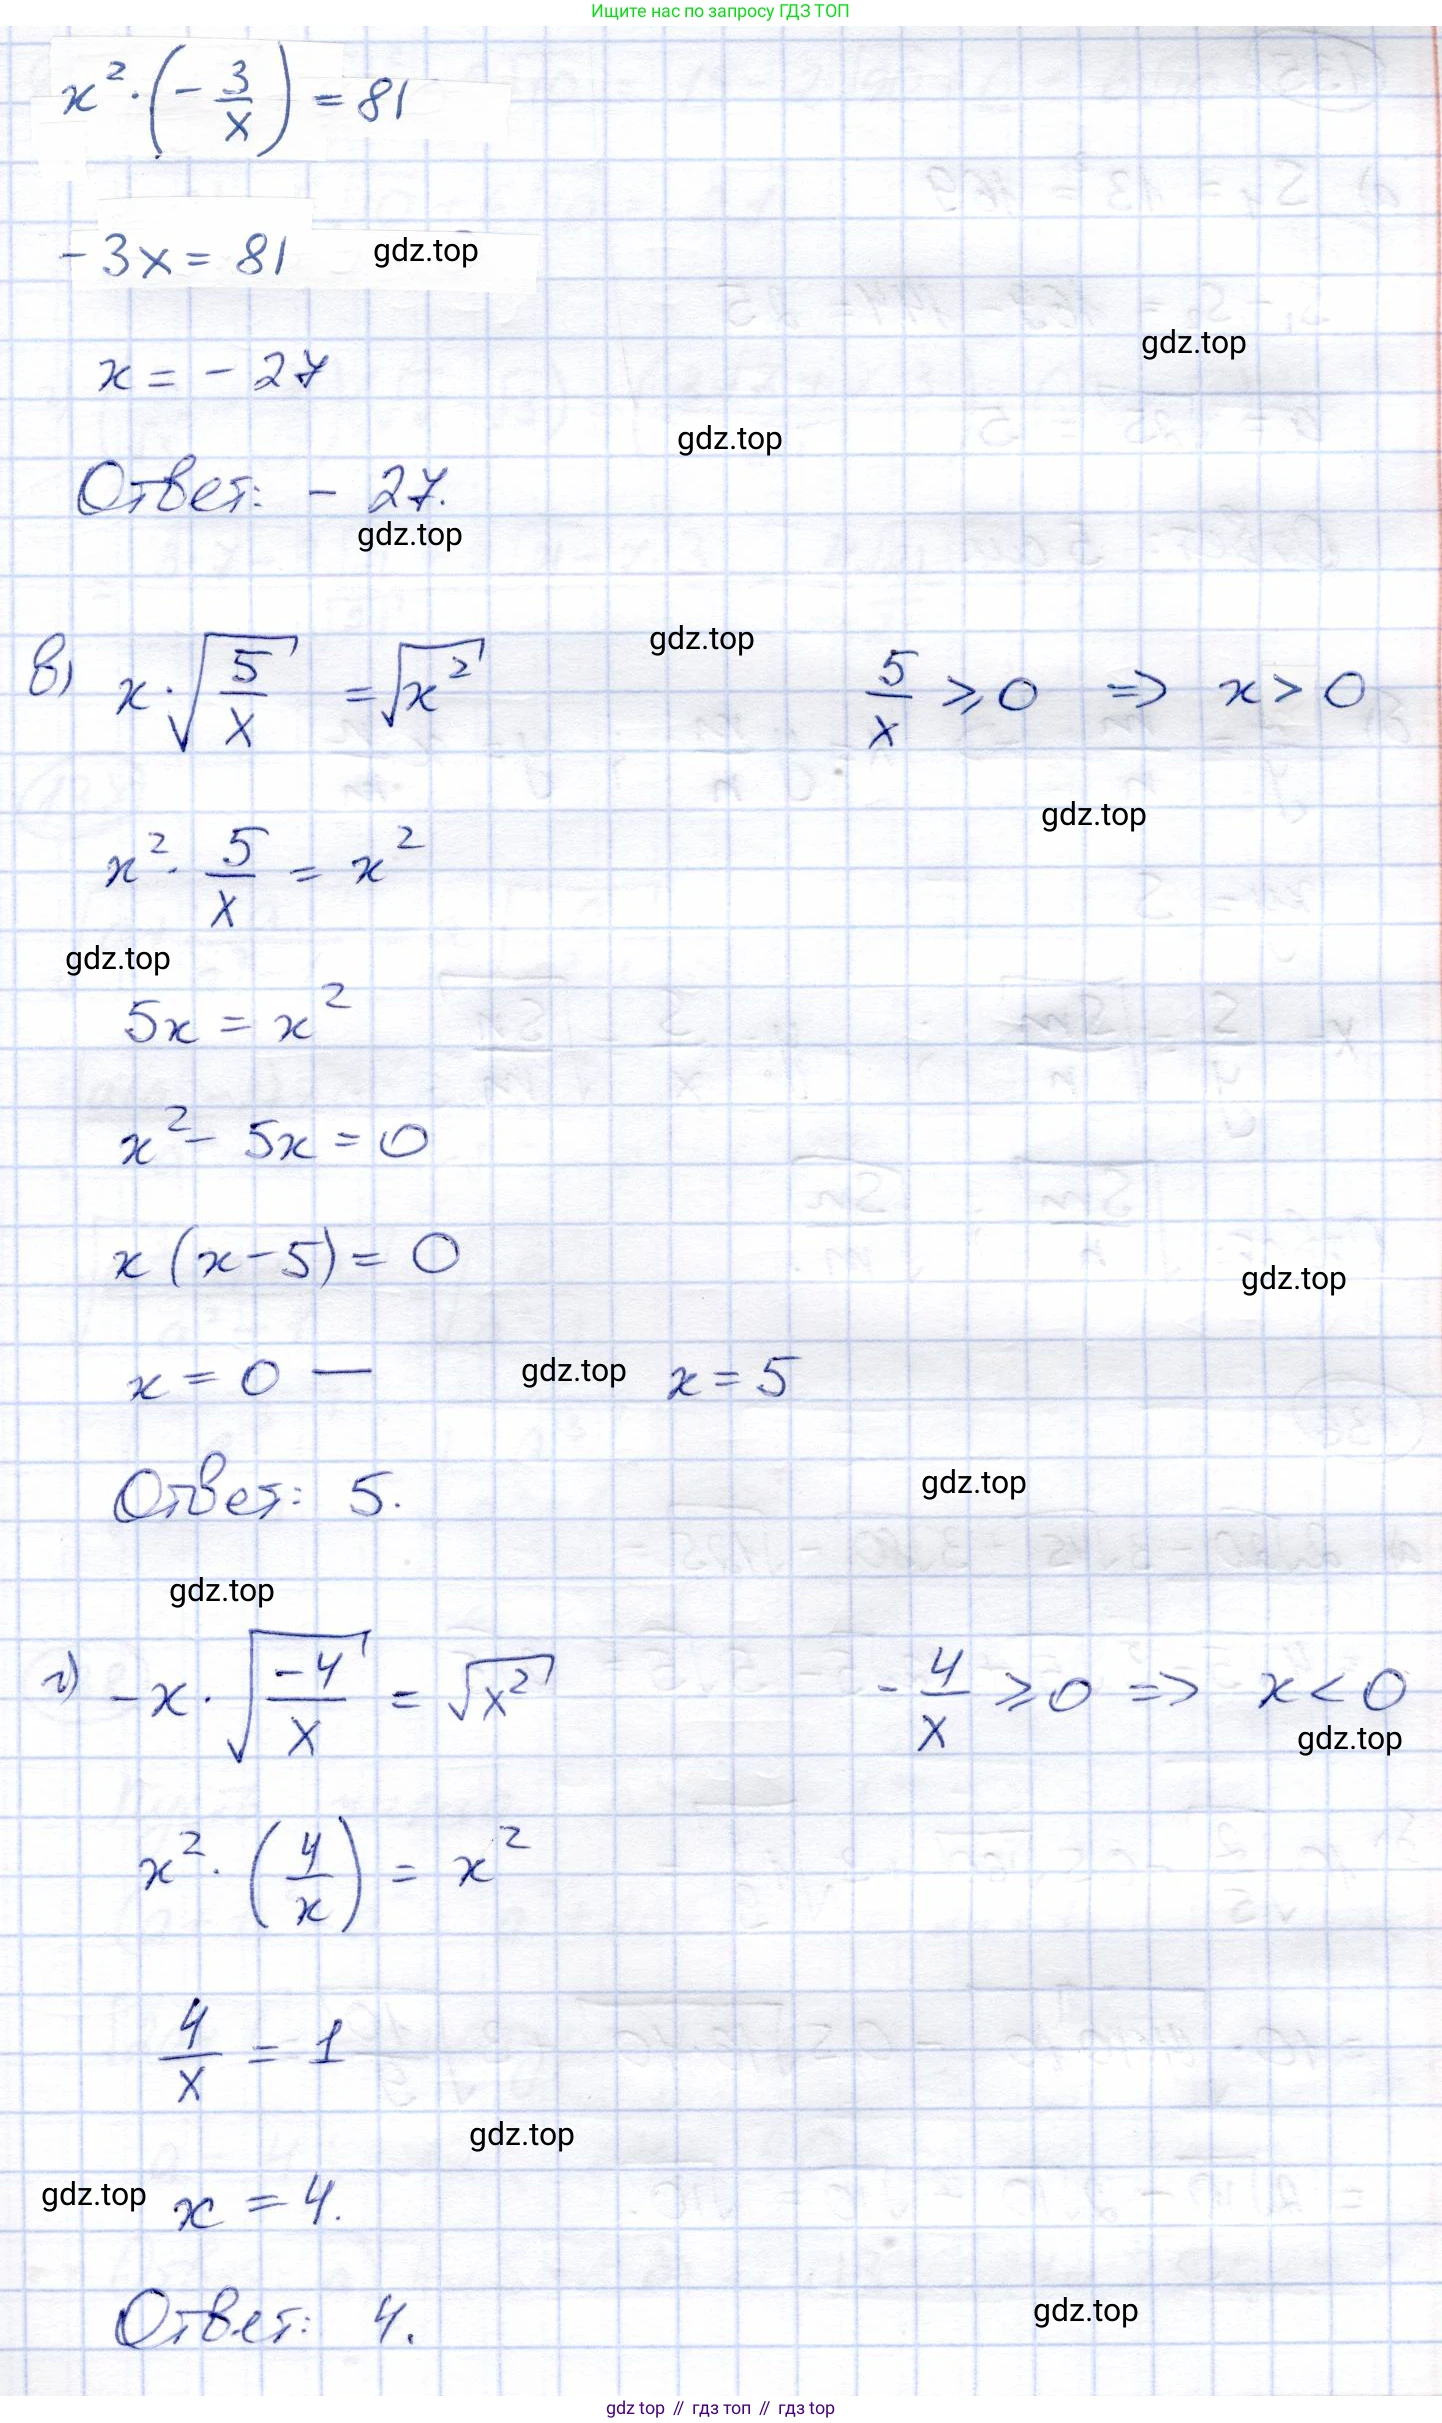 Ищите нас по запросу ГДЗ ТОП
x² · (− 3/x) = 81
− 3x = 81 gdz.top
x = − 27 gdz.top
gdz.top
Ответ: − 27.
gdz.top
в) x · √(5/x) = √(x²) gdz.top 5/x ⩾ 0 => x > 0
gdz.top
x² · 5/x = x²
gdz.top
5x = x²
x² − 5x = 0
x (x − 5) = 0
gdz.top
x = 0 — gdz.top x = 5
Ответ: 5. gdz.top
gdz.top
г) − x · √(−4/x) = √(x²) − 4/x ⩾ 0 => x < 0
gdz.top
x² · (4/x) = x²
4/x = 1
gdz.top
gdz.top x = 4.
Ответ: 4. gdz.top
gdz top // гдз топ // gdz top